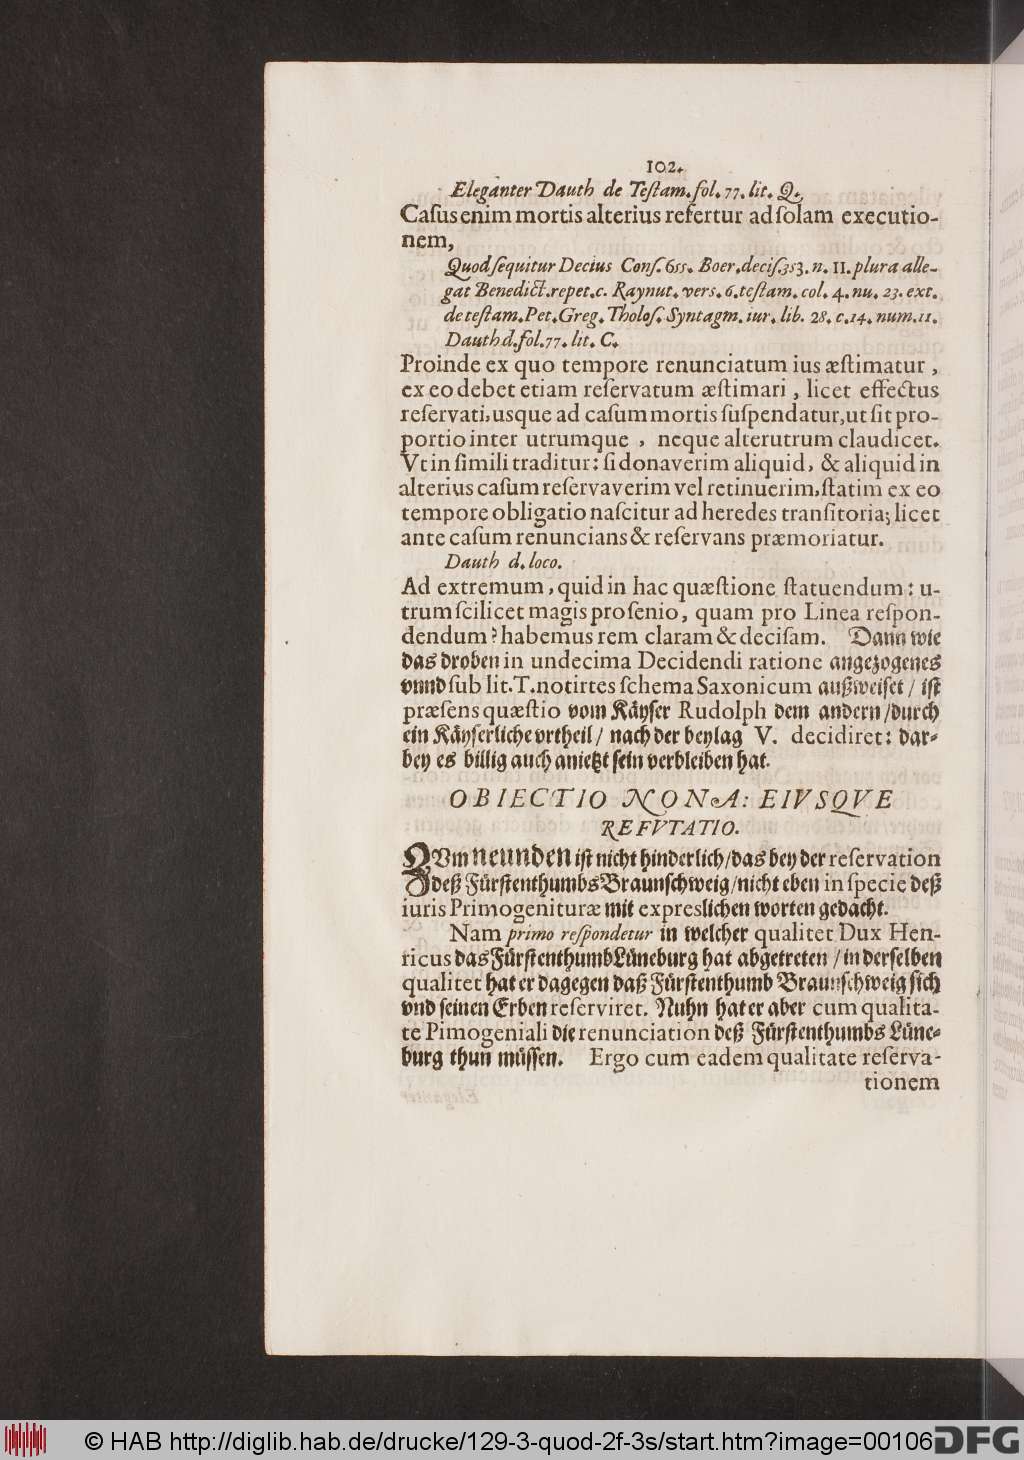 102.
Eleganter Dauth de Teſtam. fol. 77. lit. Q.
Caſus enim mortis alterius refertur ad ſolam executio-
nem,
Quod ſequitur Decius Conſ. 655. Boer. deciſ. 353. n. 11. plura alle-
gat Benedict. repet. c. Raynut. verſ. 6. teſtam. col. 4. nu. 23. ext.
de teſtam. Pet. Greg. Tholoſ. Syntagm. iur. lib. 28. c. 14. num. 11.
Dauth d. fol. 77. lit. C.
Proinde ex quo tempore renunciatum ius æſtimatur,
ex eo debet etiam reſervatum æſtimari, licet effectus
reſervati, usque ad caſum mortis ſuſpendatur, ut ſit pro-
portio inter utrumque, neque alterutrum claudicet.
Vt in ſimili traditur: ſi donaverim aliquid, & aliquid in
alterius caſum reſervaverim vel retinuerim, ſtatim ex eo
tempore obligatio naſcitur ad heredes tranſitoria; licet
ante caſum renuncians & reſervans præmoriatur.
Dauth d. loco.
Ad extremum, quid in hac quæſtione ſtatuendum: u-
trum ſcilicet magis pro ſenio, quam pro Linea reſpon-
dendum? habemus rem claram & deciſam. Dann wie
das droben in undecima Decidendi ratione angezogenes
vnnd ſub lit. T. notirtes ſchema Saxonicum außweiſet / iſt
præſens quæſtio vom Käyſer Rudolph dem andern / durch
ein Käyſerliche vrtheil / nach der beylag V. decidiret: dar-
bey es billig auch anietzt ſein verbleiben hat.
OBIECTIO NONA: EIVSQVE
REFVTATIO.
ZVm neunden iſt nicht hinderlich / das bey der reſervation
deß Fürſtenthumbs Braunſchweig / nicht eben in ſpecie deß
iuris Primogenituræ mit expreslichen worten gedacht.
Nam primo reſpondetur in welcher qualitet Dux Hen-
ricus das Fürſtenthumb Lüneburg hat abgetreten / in derſelben
qualitet hat er dagegen daß Fürſtenthumb Braunſchweig ſich
vnd ſeinen Erben reſerviret. Nuhn hat er aber cum qualita-
te Pimogeniali die renunciation deß Fürſtenthumbs Lüne-
burg thun müſſen. Ergo cum eadem qualitate reſerva-
tionem
© HAB http://diglib.hab.de/drucke/129-3-quod-2f-3s/start.htm?image=00106
DFG